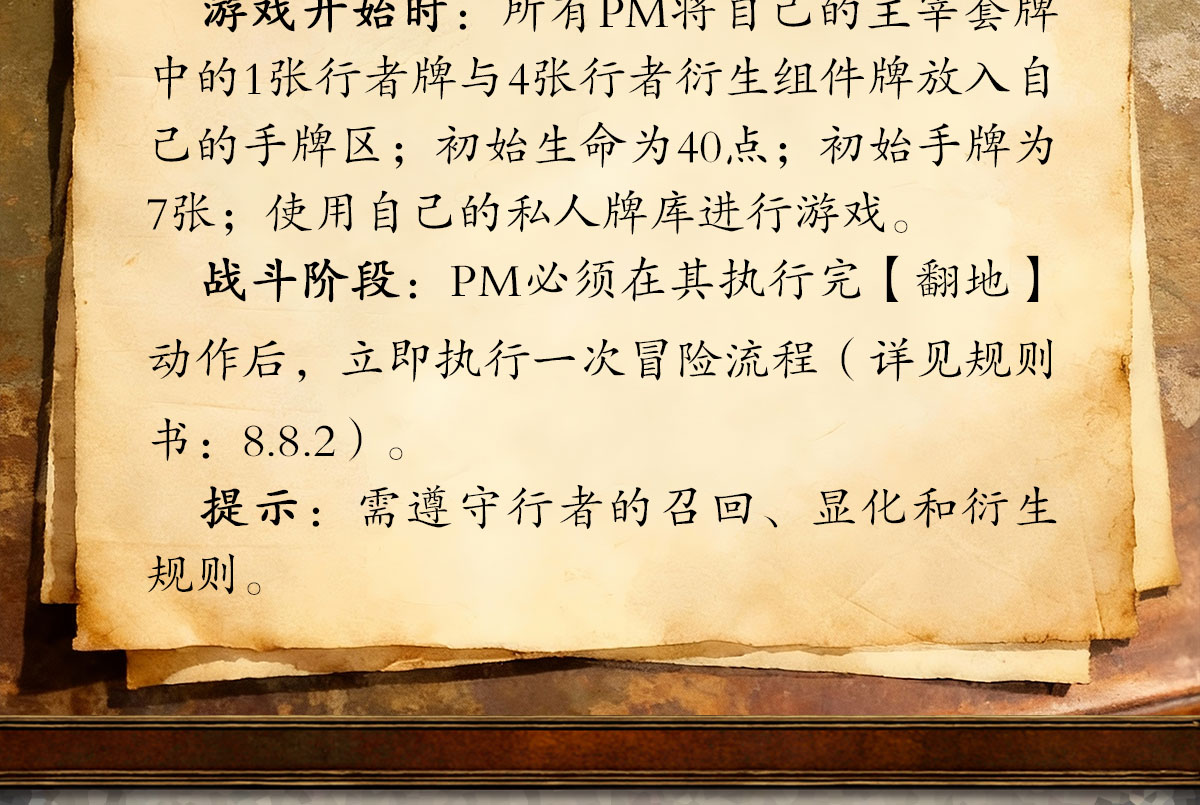 游戏开始时：所有PM将自己的主宰套牌
中的1张行者牌与4张行者衍生组件牌放入自
己的手牌区；初始生命为40点；初始手牌为
7张；使用自己的私人牌库进行游戏。
战斗阶段：PM必须在其执行完【翻地】
动作后，立即执行一次冒险流程（详见规则
书：8.8.2）。
提示：需遵守行者的召回、显化和衍生
规则。